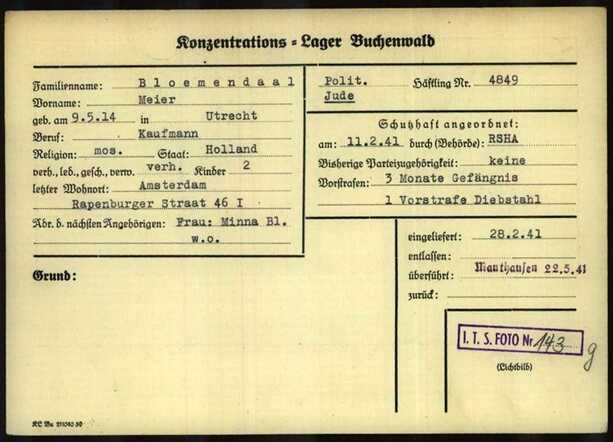 Konzentrations = Lager Buchenwald
Familienname: Bloemendaal
Vorname: Meier
geb. am 9.5.14 in Utrecht
Beruf: Kaufmann
Religion: mos. Staat: Holland
verh., led., gesch., verw. verh. Kinder 2
letzter Wohnort: Amsterdam
Rapenburger Straat 46 I
Adr. d. nächsten Angehörigen: Frau: Minna Bl.
w.o.
Polit. Häftling Nr. 4849
Jude
Schutzhaft angeordnet:
am: 11.2.41 durch (Behörde): RSHA
Bisherige Parteizugehörigkeit: keine
Vorstrafen: 3 Monate Gefängnis
1 Vorstrafe Diebstahl
eingeliefert: 28.2.41
entlassen:
überführt: Mauthausen 22.5.41
zurück:
Grund:
I. T. S. FOTO Nr. 143
g
(Lichtbild)